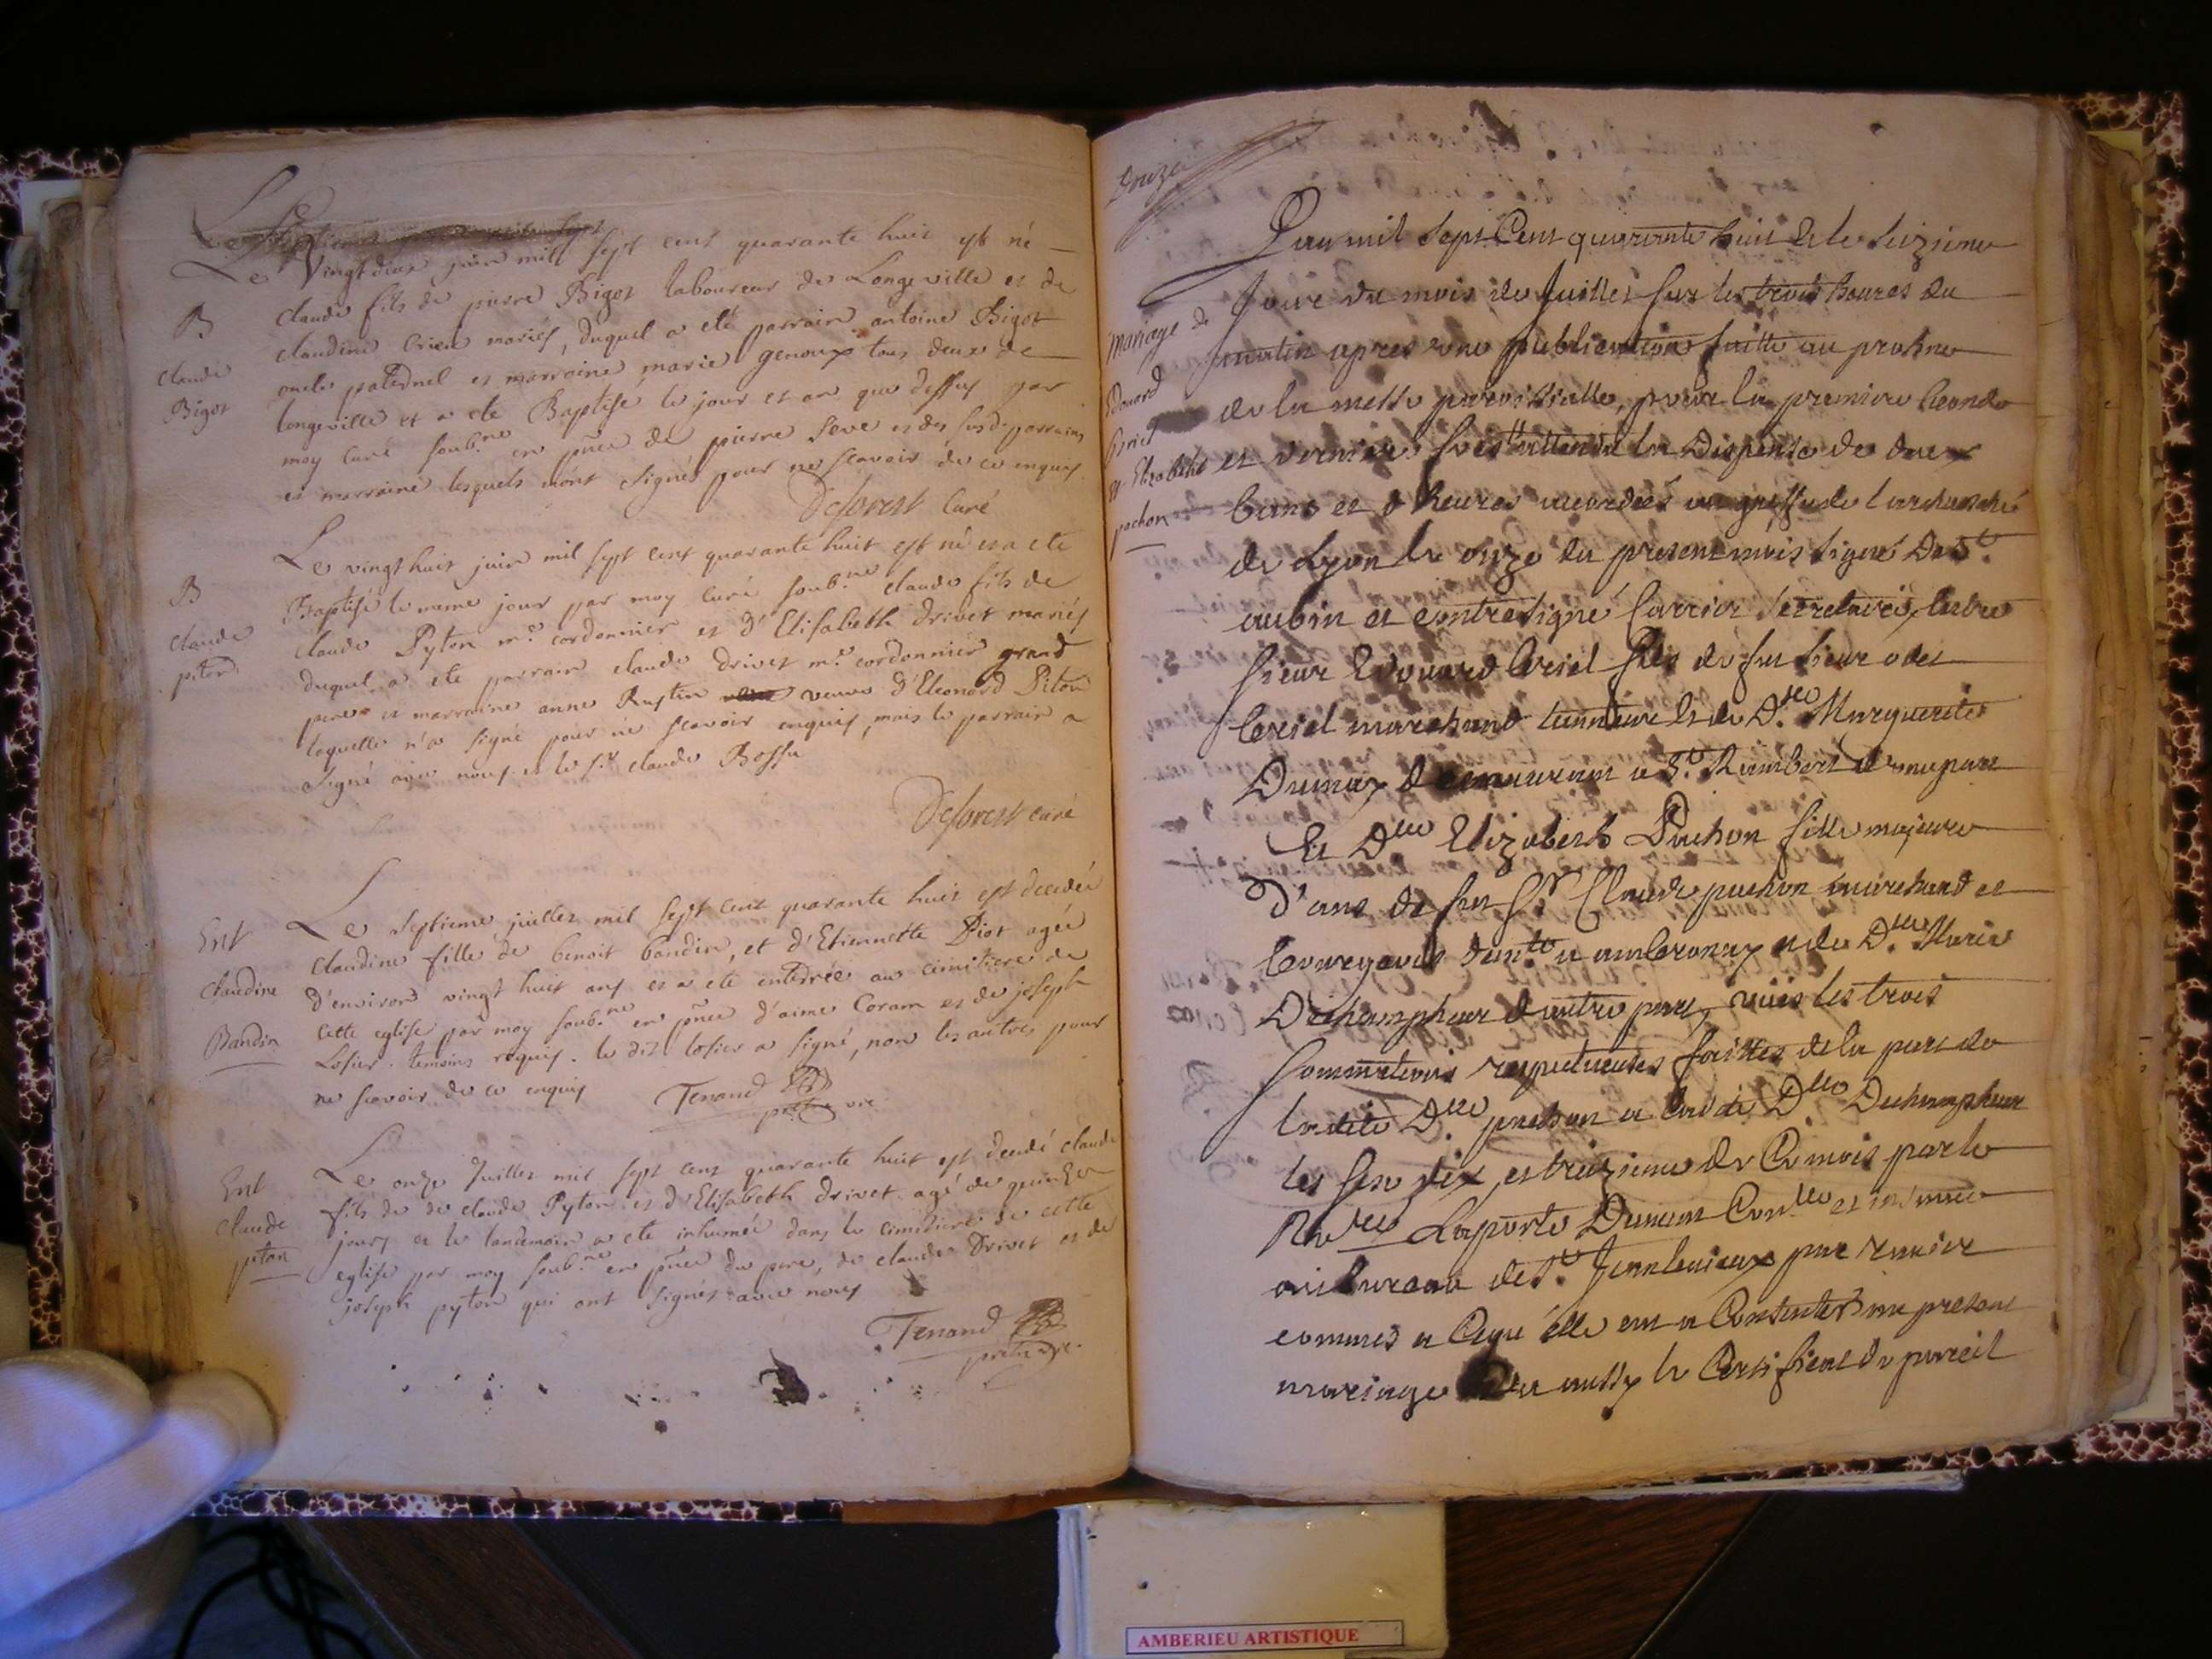 Le Vingt deux juin mil sept cent quarante huit est né
B claude fils de pierre Bigot laboureur de Longeville et de
claudine Crieu mariés, duquel a eté parrain antoine Bigot
Claude oncle paternel et marraine marie genoux tous deux de
Bigot longeville et a eté Baptisé le jour et an que dessus par
moy Curé soub.né en pñce de pierre Seve et des susd. parrain
et marraine lesquels n'ont signés pour ne scavoir de ce enquis.
Deforest Curé
Le vingt huit juin mil sept cent quarante huit est né et a eté
B Baptisé le meme jour par moy Curé soub.né claude fils de
Claude claude Pyton m.e cordonnier et d'Elisabeth Drivet mariés
piton duquel a eté parrain claude Drivet m.e cordonnier grand
pere et marraine anne Rustin veuve d'Eleonard Piton
laquelle n'a signé pour ne scavoir enquis, mais le parrain a
signé avec nous et le s.r claude Bossu
Deforest curé
Ent Le septieme juillet mil sept cent quarante huit est decedée
claudine claudine fille de benoit bandin, et d'Etiennette Piot agée
d'environ vingt huit ans et a eté enterrée au cimitiere de
Bandin cette eglise par moy soub.né en pñce d'aime Coram et de joseph
Losier temoins requis. le dit losier a signé, non les autres pour
ne scavoir de ce enquis
Tenand
pretre vic.
Ent Le onze Juillet mil sept cent quarante huit est decedé claude
claude fils de de claude Pyton et d'Elisabeth Drivet agé de quinze
piton jours et le landemain a eté inhumé dans le cimitiere de cette
eglise par moy soub.né en pñce du pere, de claude Drivet et de
joseph pyton qui ont signés avec nous
Tenand
pretre vic.
Douze
L'an mil sept Cent quarante huit et le seizieme
Jour du mois de Juillet sur les trois heures du
mariage de matin apres une publication faitte au prosne
Edouard de la messe paroissialle, pour la premiere
Briel
et Elizabeth et derniere fois attendu la Dispense de deux
pochon bans et d'heures accordées au greffe de l'archevesché
de Lyon le onze du present mois signé De S.t
aubin et contresigné Carrier secretaire, entre
sieur Edouard Briel fils de feu sieur
Briel marchand tanneur et de D.lle Marguerite
Dumax Demeurant a S.t Rambert d'une part
Et D.lle Elizabeth Pochon fille majeure
D'ans de feu S.r Claude pochon marchand et
bourgeois dem.t a ambronay et de D.lle Marie
Dechampheur d'autre part, vüis les trois
sommations respectueuses faittes de la part de
ladite D.lle pochon a lad.te D.lle Dechampheur
les six dix et treizieme de Ce mois par le
Laporte
au bureau de S.t Jean le vieux
comme a Ce qu'elle eut a Consentir au present
mariage Vu aussy le Certifficat de pareil
AMBERIEU ARTISTIQUE